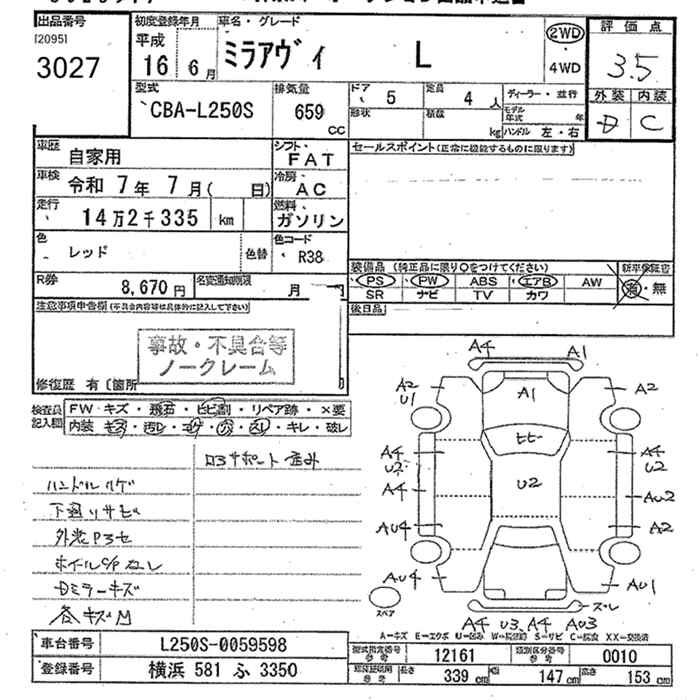 出品番号 初度登録年月 車名・グレード 評価点
[2095] 平成 ミラアヴィ L 2WD 3.5
3027 16年 6月 4WD 外装 内装
型式 排気量 ドア 5 定員 4人 ディーラー・並行 D C
CBA-L250S 659 形状 積載 モデル年式 年
CC kg ハンドル 左・右
車歴 自家用 シフト FAT セールスポイント(正常に機能するものに限ります)
車検 令和 7年 7月( 日) 冷房 AC
走行 14万2千335 km 燃料 ガソリン
色 レッド 色替 色コード R38
装備品 (純正品に限り○をつけてください) 新車保証書
R券 8,670円 名変通知期限 月 PS PW ABS エアB AW 有・無
SR ナビ TV カワ
注意事項申告欄(不具合内容等は具体的に記入して下さい) 後日品
事故・不具合等
ノークレーム
修復歴 有〔箇所
検査員記入欄 FW キズ・飛石・ヒビ割・リペア跡・×要
内装 キズ・汚レ・コゲ・穴・スレ・キレ・破レ
ロアサポート 歪み
ハンドルハゲ
下廻りサビ
外光P3セ
ホイルC/Pなし
Dミラーキズ
各キズM
A4 A1
A2 U1 A1 A2
A4 U2 ヒビ A4 U2
A4 U2 AU2
AU4 A2
AU4 AU1
スペア ズレ
A4 U3 A4 AU3
A=キズ E=エクボ U=凹み W=板金跡 S=サビ C=腐食 XX=交換済
車台番号 L250S-0059598 型式指定番号 参考 12161 類別区分番号 参考 0010
登録番号 横浜 581 ふ 3350 長さ 339cm 幅 147cm 高さ 153cm